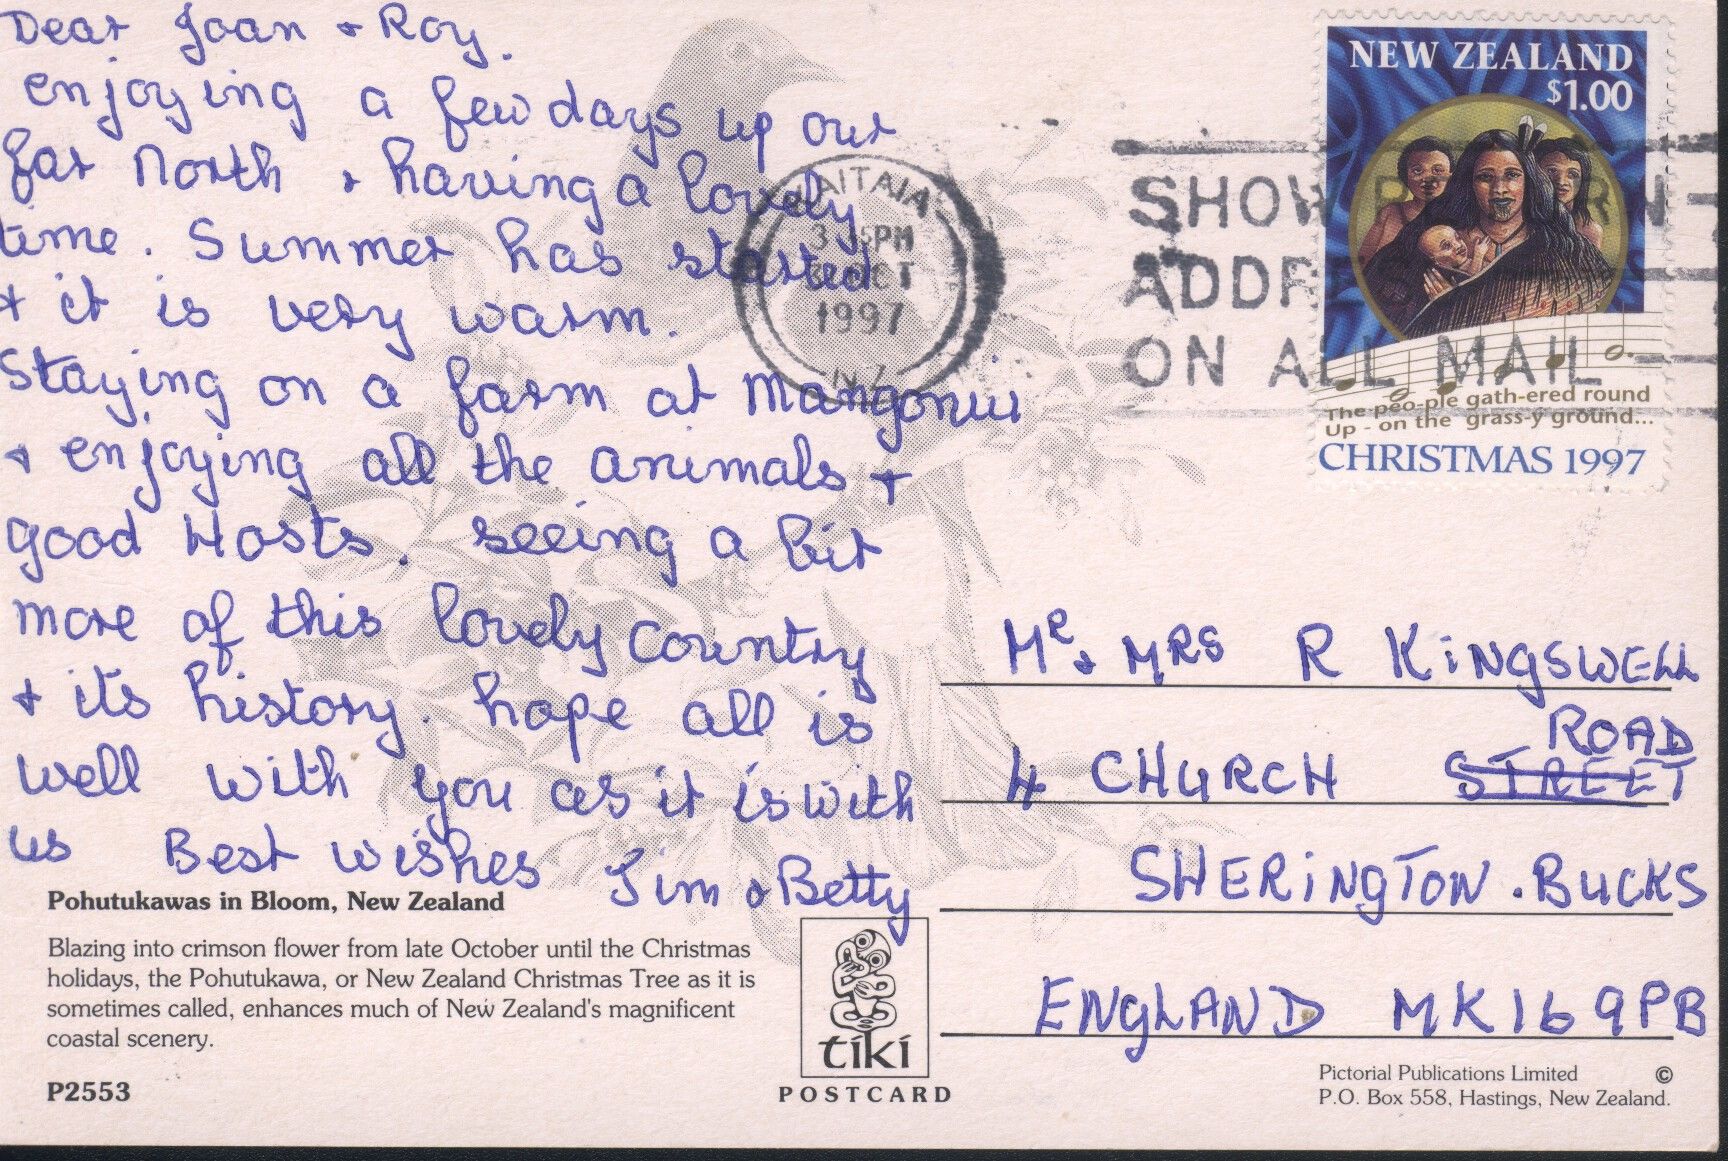 Dear Joan + Roy.
enjoying a few days up our
far North + having a lovely
time. Summer has started
+ it is very warm.
Staying on a farm at Mangonui
+ enjoying all the animals +
good Hosts. seeing a bit
more of this lovely country
+ its history. hope all is
well with you as it is with
us Best wishes Jim & Betty
Pohutukawas in Bloom, New Zealand
Blazing into crimson flower from late October until the Christmas
holidays, the Pohutukawa, or New Zealand Christmas Tree as it is
sometimes called, enhances much of New Zealand's magnificent
coastal scenery.
P2553
tiki
POSTCARD
AITAIA
PM
OCT
1997
N.Z.
SHOW
ADDR
ON ALL MAIL
NEW ZEALAND
$1.00
The peo-ple gath-ered round
Up - on the grass-y ground...
CHRISTMAS 1997
Mr & MRS R KINGSWELL
ROAD
4 CHURCH STREET
SHERINGTON. BUCKS
ENGLAND MK16 9PB
Pictorial Publications Limited ©
P.O. Box 558, Hastings, New Zealand.